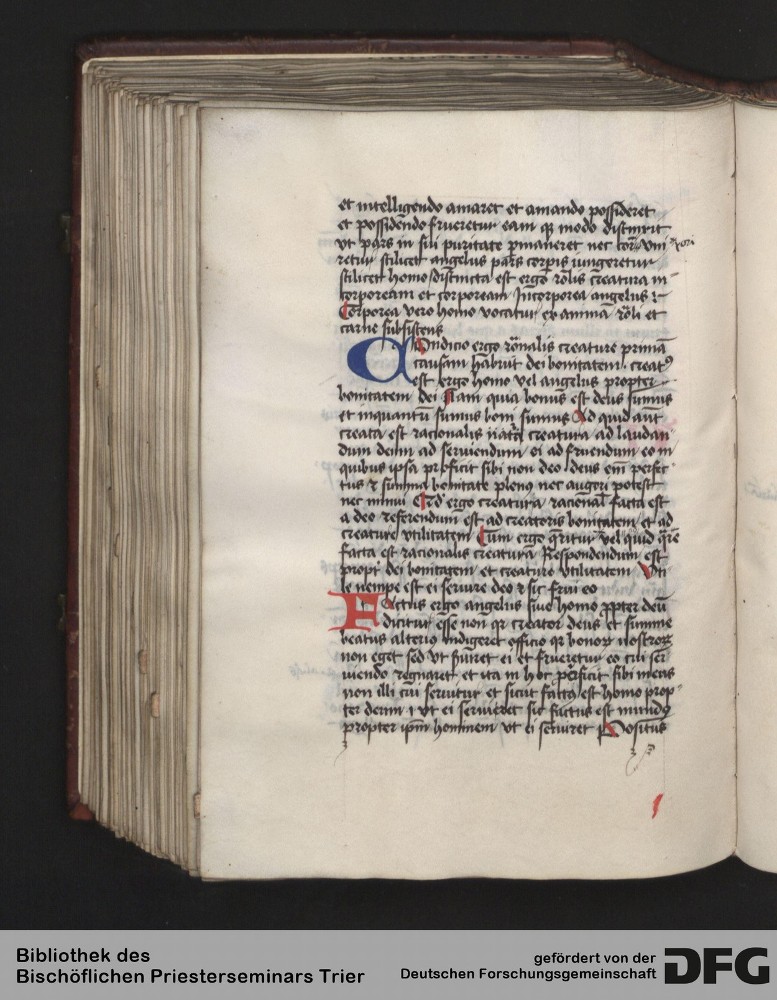 et intelligendo amaret et amando possideret
et possidendo frueretur eam qꝫ modo distinxit
vt pars in sui puritate pmaneret nec corꝑi vni
retur scilicet angelus pars corpis iungeretur
scilicet homo distincta est ergo rōlis creatura in
corpoream et corpoream Incorporea angelus
Corporea vero homo vocatur ex anima rōli et
carne subsistens
Condicio ergo rōnalis creature primā
causam habuit dei bonitatem creatꝰ
est ergo homo vel angelus propter
bonitatem dei Nam quia bonus est deus sumus
et inquantū sumus boni sumus Ad quid aūt
creata est racionalis creatura ad laudan
dum deum ad seruiendum ei ad fruendum eo in
quibus ipsa proficit sibi non deo deus em̄ perfec
tus ⁊ summa bonitate plenus nec augeri potest
nec minui Qd ergo creatura racional facta est
a deo referendum est ad creatoris bonitatem et ad
creature vtilitatem Cum ergo q̄ritur vel quid q̄re
facta est racionalis creatura Respondendum est
propt dei bonitatem et creature vtilitatem Vti
le nempe est ei seruire deo ⁊ sic frui eo
Factus ergo angelus siue homo ꝓpter deū
dicitur esse non qꝛ creator deus et summe
beatus alterio indigeret officio qꝛ bonoꝝ nostroꝝ
non eget sed vt s̄uiret ei et frueretur eo cui ser
uiendo regnaret et ita in hoc perficit sibi
non illi cui seruitur et sicut factꝰ est homo prop
ter deum i vt ei seruieret sic factus est mundꝰ
propter ipm̄ hominem vt ei seruiret Positus
Bibliothek des
Bischöflichen Priesterseminars Trier
gefördert von der
Deutschen Forschungsgemeinschaft
DFG